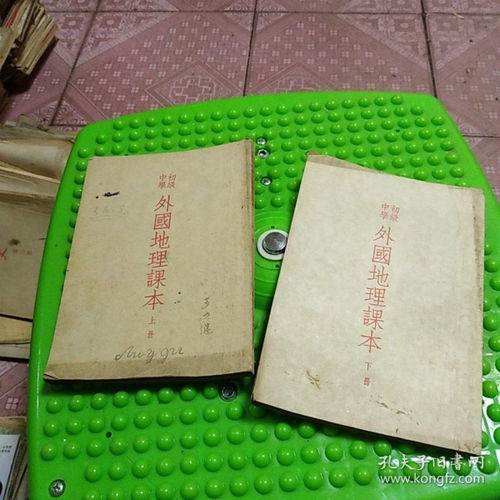 初級
中學
外國地理課本
上冊
初級
中學
外國地理課本
下冊
孔夫子旧书网
www.kongfz.com